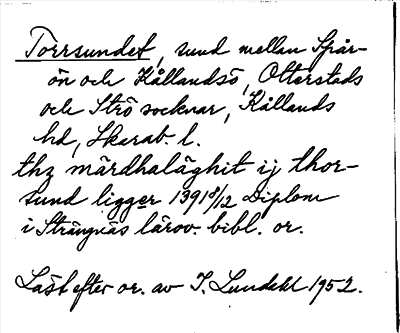 Torrsundet, sund mellan Spår-
ön och Kållandsö, Otterstads
och Strö socknar, Kållands
hd, Skarab. l.
thz mårdhalåghit ij thor-
sund ligger 1391 8/12 Diplom
i Strängnäs lärov. bibl. or.
Läst efter or. av I. Lundahl 1952.